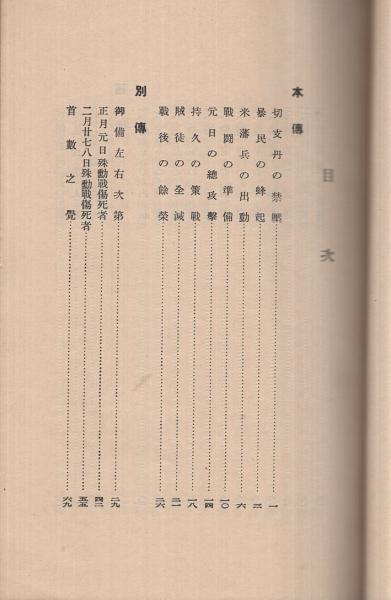 目次
本傳
切支丹の禁壓 一
暴民の蜂起 三
米藩兵の出動 六
戰鬪の準備 一〇
元日の總攻擊 一四
持久の策戰 一八
賊徒の全滅 二一
戰後の餘榮 二六
別傳
御備左右次第 二九
正月元日殊勳戰傷死者 四二
二月廿七八日殊勳戰傷死者 五五
首數之覺 六九